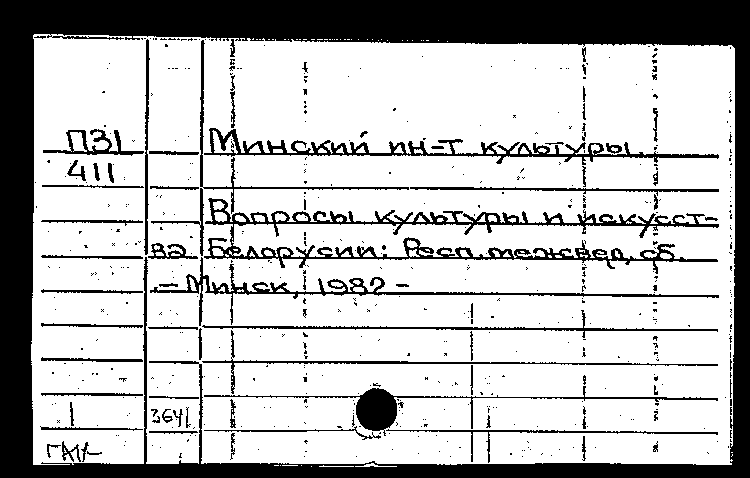 П31 Минский ин-т культуры.
411
Вопросы культуры и искусст-
ва Белорусии: Респ. межвед. сб.
.- Минск, 1982 -
1 3641